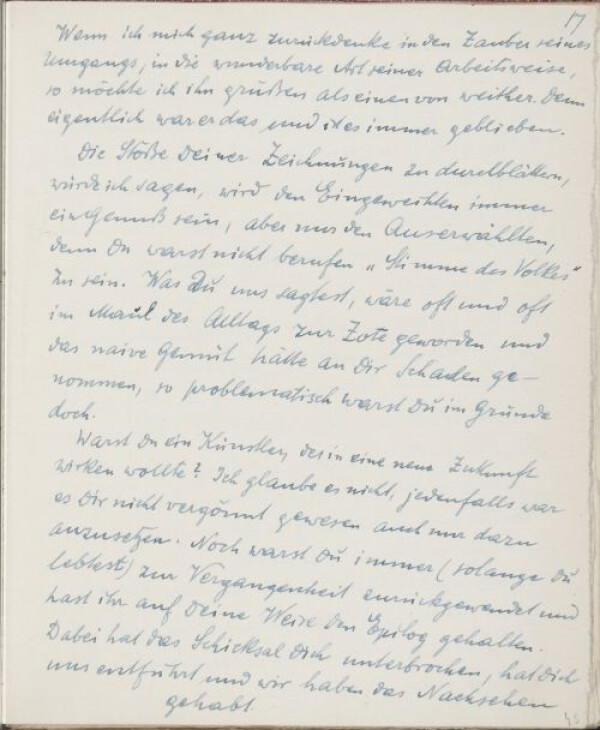 17
Wenn ich mich ganz zurückdenke in den Zauber seines
Umgangs, in die wunderbare Art seiner Arbeitsweise,
so möchte ich ihn grüßen als einen von weither. Denn
eigentlich war er das und ist es immer geblieben.
Die Stöße Deiner Zeichnungen zu durchblättern,
würde ich sagen, wird den Eingeweihten immer
ein Genuß sein, aber nur den Auserwählten,
denn Du warst nicht berufen „Stimme des Volkes"
zu sein. Was Du uns sagtest, wäre oft und oft
im Maul des Alltags zur Zote geworden und
das naive Gemüt hätte an Dir Schaden ge-
nommen, so problematisch warst Du im Grunde
doch.
Warst Du ein Künstler, der in eine neue Zukunft
wirken wollte? Ich glaube es nicht, jedenfalls war
es Dir nicht vergönnt gewesen auch nur dazu
anzusetzen. Noch warst Du immer (solange Du
lebtest) zur Vergangenheit zurückgewendet und
hast ihr auf Deine Weise den Epilog gehalten.
Dabei hat das Schicksal Dich unterbrochen, hat Dich
uns entführt und wir haben das Nachsehen
gehabt.